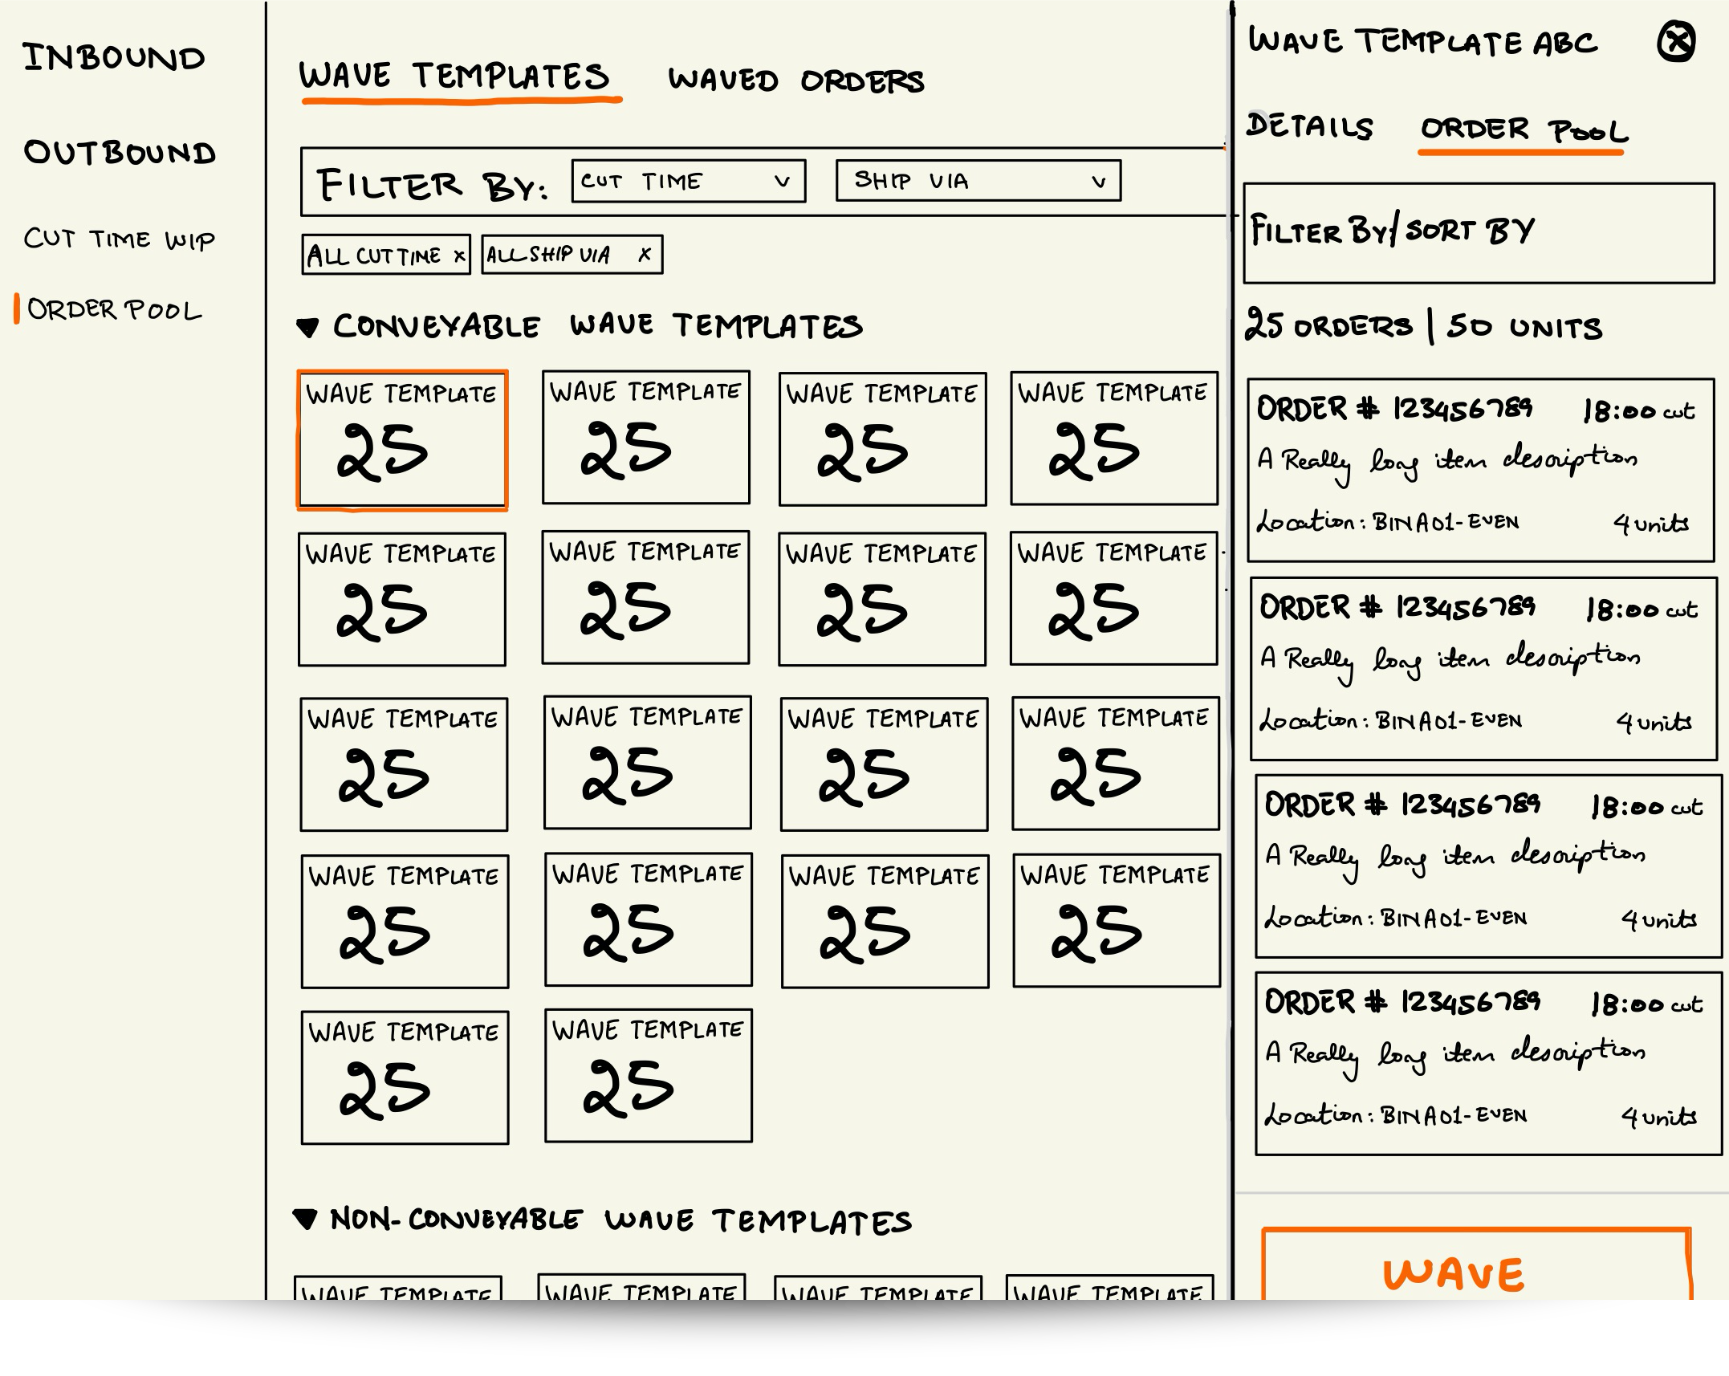 INBOUND
OUTBOUND
CUT TIME WIP
ORDER POOL
WAVE TEMPLATES WAVED ORDERS
FILTER BY: CUT TIME v SHIP VIA v
ALL CUT TIME x ALL SHIP VIA x
▼ CONVEYABLE WAVE TEMPLATES
WAVE TEMPLATE WAVE TEMPLATE WAVE TEMPLATE WAVE TEMPLATE
25 25 25 25
WAVE TEMPLATE WAVE TEMPLATE WAVE TEMPLATE WAVE TEMPLATE
25 25 25 25
WAVE TEMPLATE WAVE TEMPLATE WAVE TEMPLATE WAVE TEMPLATE
25 25 25 25
WAVE TEMPLATE WAVE TEMPLATE WAVE TEMPLATE WAVE TEMPLATE
25 25 25 25
WAVE TEMPLATE WAVE TEMPLATE
25 25
▼ NON-CONVEYABLE WAVE TEMPLATES
WAVE TEMPLATE WAVE TEMPLATE WAVE TEMPLATE WAVE TEMPLATE
WAVE TEMPLATE ABC
DETAILS ORDER POOL
FILTER BY/SORT BY
25 ORDERS | 50 UNITS
ORDER # 123456789 18:00 cut
A Really long item description
Location: BINA01-EVEN 4 units
ORDER # 123456789 18:00 cut
A Really long item description
Location: BINA01-EVEN 4 units
ORDER # 123456789 18:00 cut
A Really long item description
Location: BINA01-EVEN 4 units
ORDER # 123456789 18:00 cut
A Really long item description
Location: BINA01-EVEN 4 units
WAVE